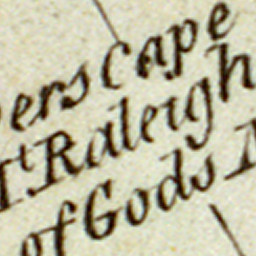 ers Cape
Mt. Raleigh
of Gods